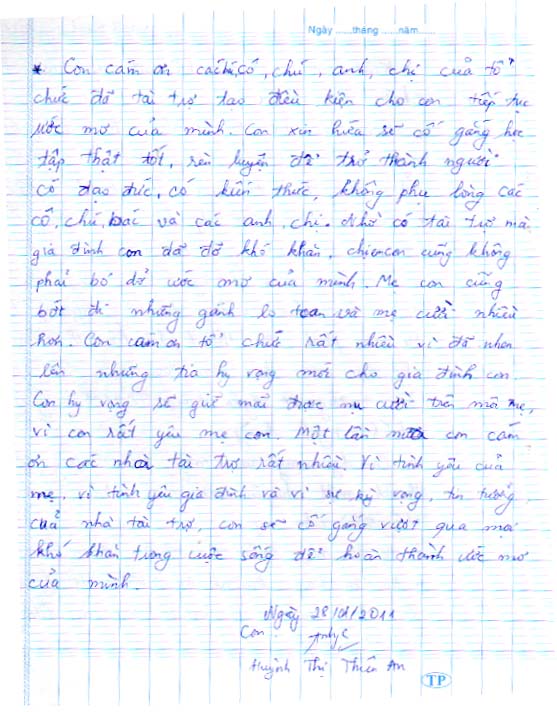 Ngày ......tháng ......năm......
* Con cảm ơn các cô, chú, anh, chị của tổ
chức đã tài trợ tạo điều kiện cho con tiếp tục
ước mơ của mình. Con xin hứa sẽ cố gắng học
tập thật tốt, rèn luyện để trở thành người
có đạo đức, có kiến thức, không phụ lòng các
cô, chú, bác và các anh, chị. Nhờ có tài trợ mà
gia đình con đã đỡ khó khăn, con cũng không
phải bỏ dở ước mơ của mình. Mẹ con cũng
bớt đi những gánh lo toan và mẹ cười nhiều
hơn. Con cảm ơn tổ chức rất nhiều vì đã nhen
lên những tia hy vọng mới cho gia đình con.
Con hy vọng sẽ giữ mãi được nụ cười trên môi mẹ,
vì con rất yêu mẹ con. Một lần nữa con cảm
ơn các nhà tài trợ rất nhiều. Vì tình yêu của
mẹ, vì tình yêu gia đình và vì sự kỳ vọng, tin tưởng
của nhà tài trợ, con sẽ cố gắng vượt qua mọi
khó khăn trong cuộc sống để hoàn thành ước mơ
của mình.
Ngày 28/01/2011
Con
Huỳnh Thị Thiên An
TP